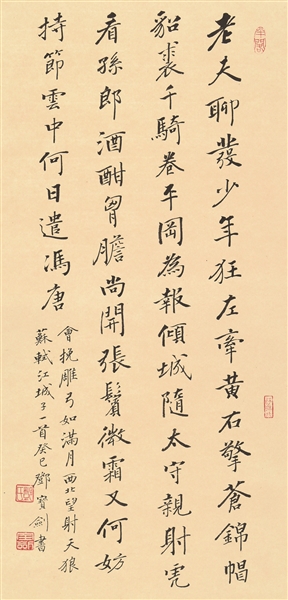 老夫聊發少年狂左牽黃右擎蒼錦帽
貂裘千騎卷平岡為報傾城隨太守親射虎
看孫郎酒酣胷膽尚開張鬢微霜又何妨
持節雲中何日遣馮唐
會挽雕弓如滿月西北望射天狼
蘇軾江城子一首癸巳鄧寶劍書